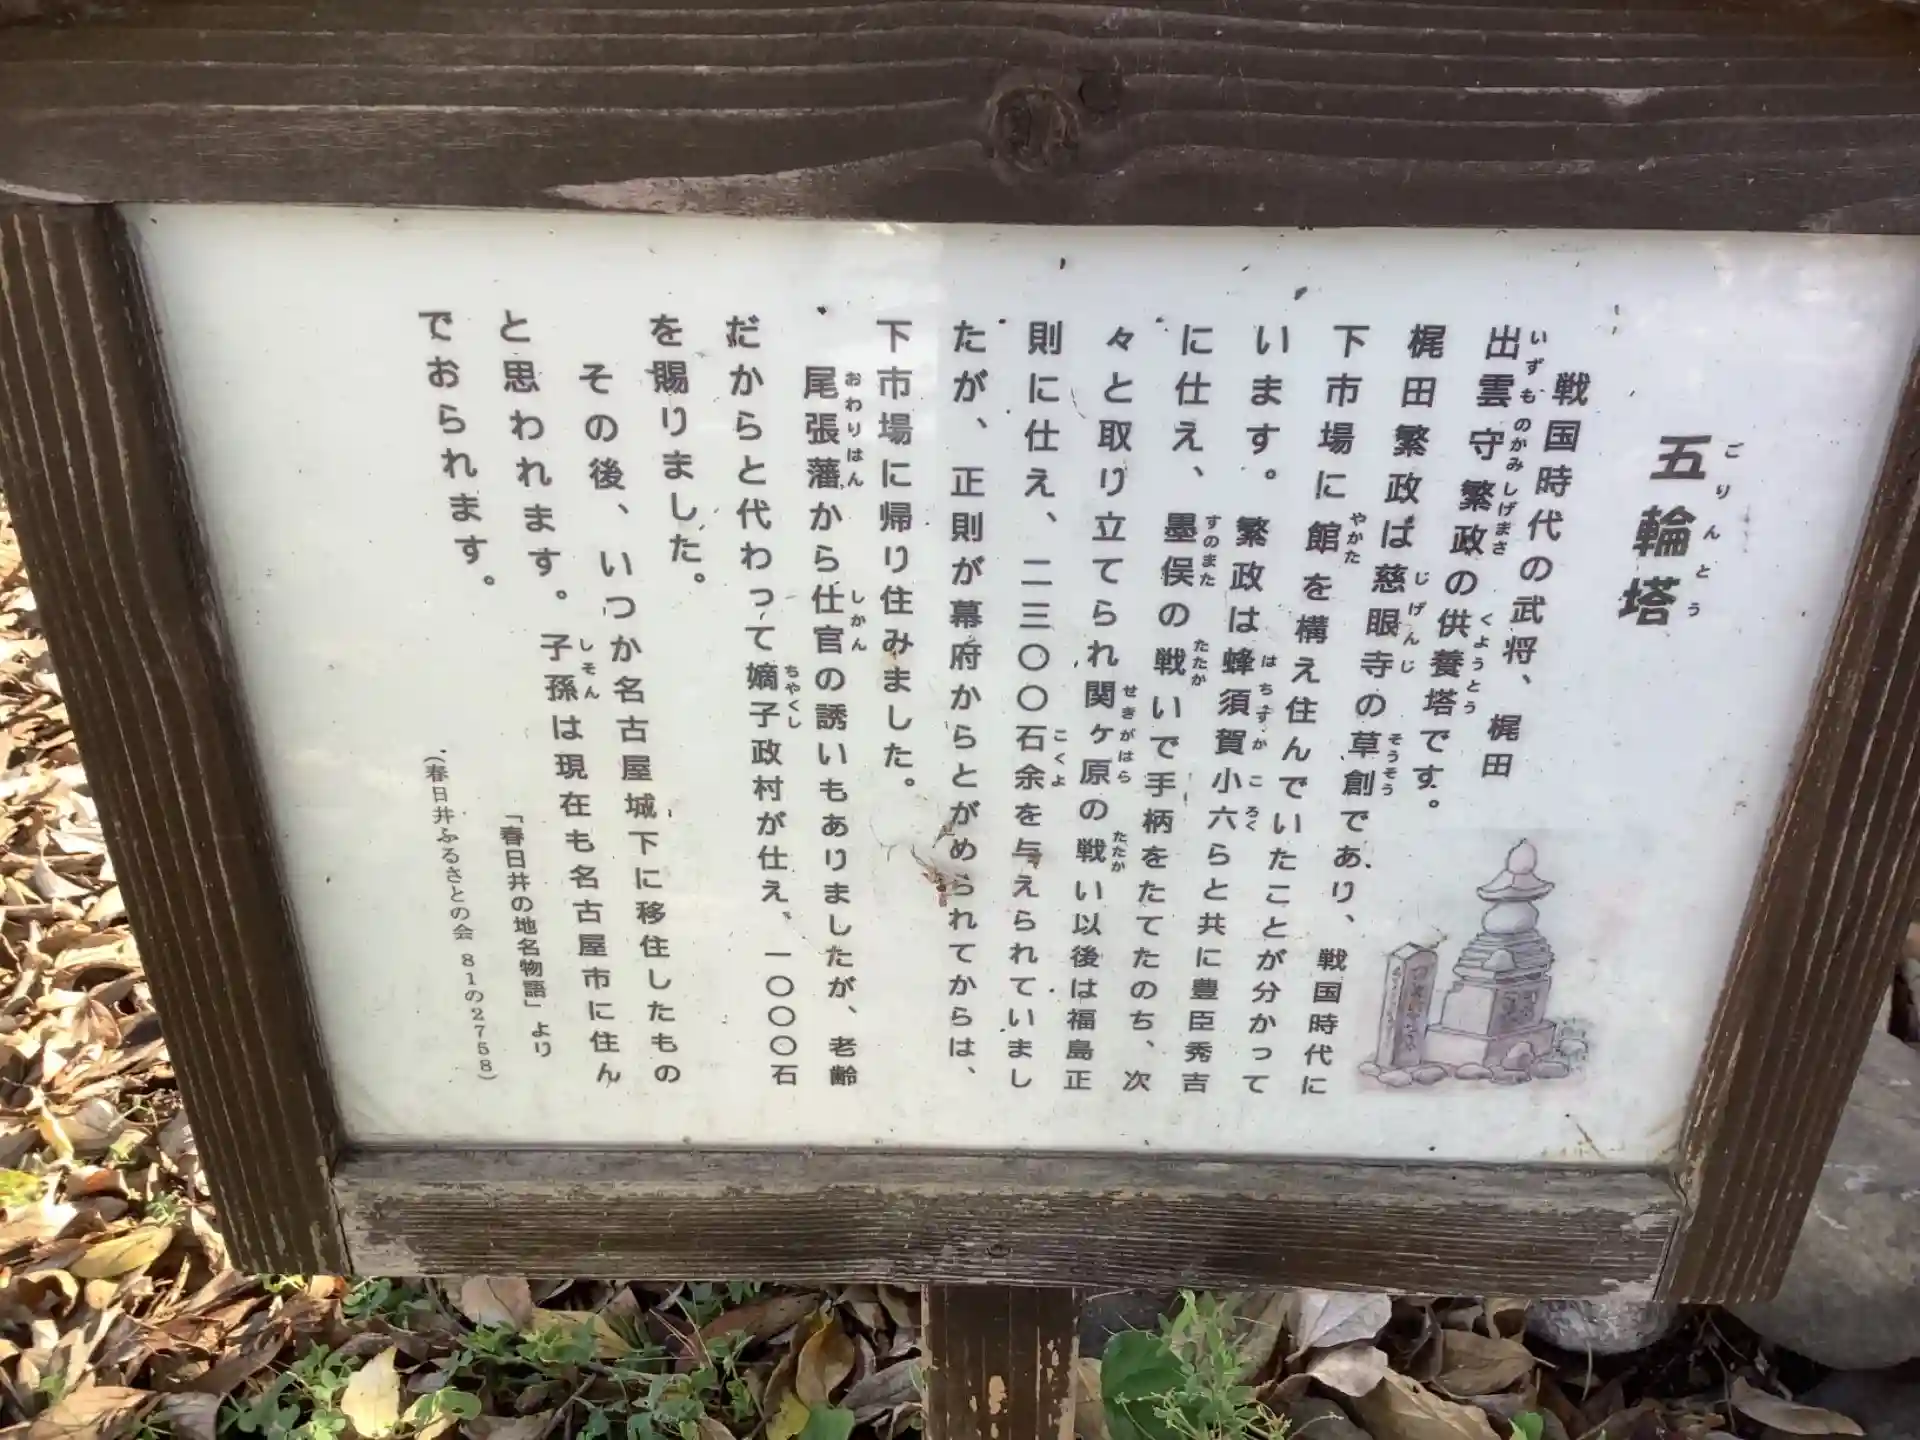 五輪塔
戦国時代の武将、梶田
出雲守繁政の供養塔です。
梶田繁政は慈眼寺の草創であり、戦国時代に
下市場に館を構え住んでいたことが分かって
います。繁政は蜂須賀小六らと共に豊臣秀吉
に仕え、墨俣の戦いで手柄をたてたのち、次
々と取り立てられ関ヶ原の戦い以後は福島正
則に仕え、二三〇〇石余を与えられていまし
たが、正則が幕府からとがめられてからは、
下市場に帰り住みました。
尾張藩から仕官の誘いもありましたが、老齢
だからと代わって嫡子政村が仕え、一〇〇〇石
を賜りました。
その後、いつか名古屋城下に移住したもの
と思われます。子孫は現在も名古屋市に住ん
でおられます。
「春日井の地名物語」より
(春日井ふるさとの会 81の2758)